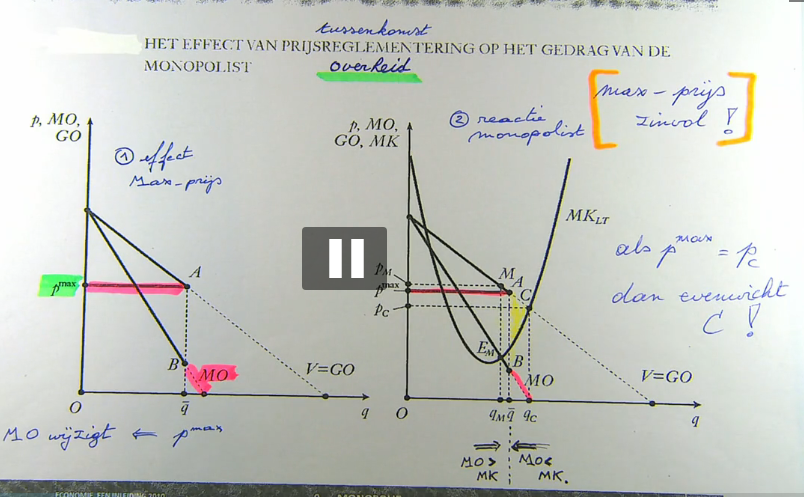 tussenkomst
HET EFFECT VAN PRIJSREGLEMENTERING OP HET GEDRAG VAN DE
MONOPOLIST
overheid
max-prijs
zinvol !
p, MO,
GO
① effect
Max-prijs
pmax
A
B
MO
V=GO
O
q̄
q
MO wijzigt ⇐ pmax
p, MO,
GO, MK
② reactie
monopolist
MKLT
pM
pmax
pC
M
A
C
EM
B
MO
V=GO
O
qM
q̄
qC
q
MO >
MK
MO <
MK.
als pmax = pc
dan evenwicht
C !
ECONOMIE, EEN INLEIDING 2010
9
MONOPOLIE